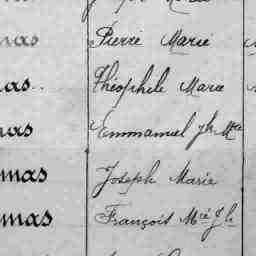 mas Pierre Marie
as Théophile Marie
as Emmanuel Jh Mie
mas Joseph Marie
mas François Mie Jh